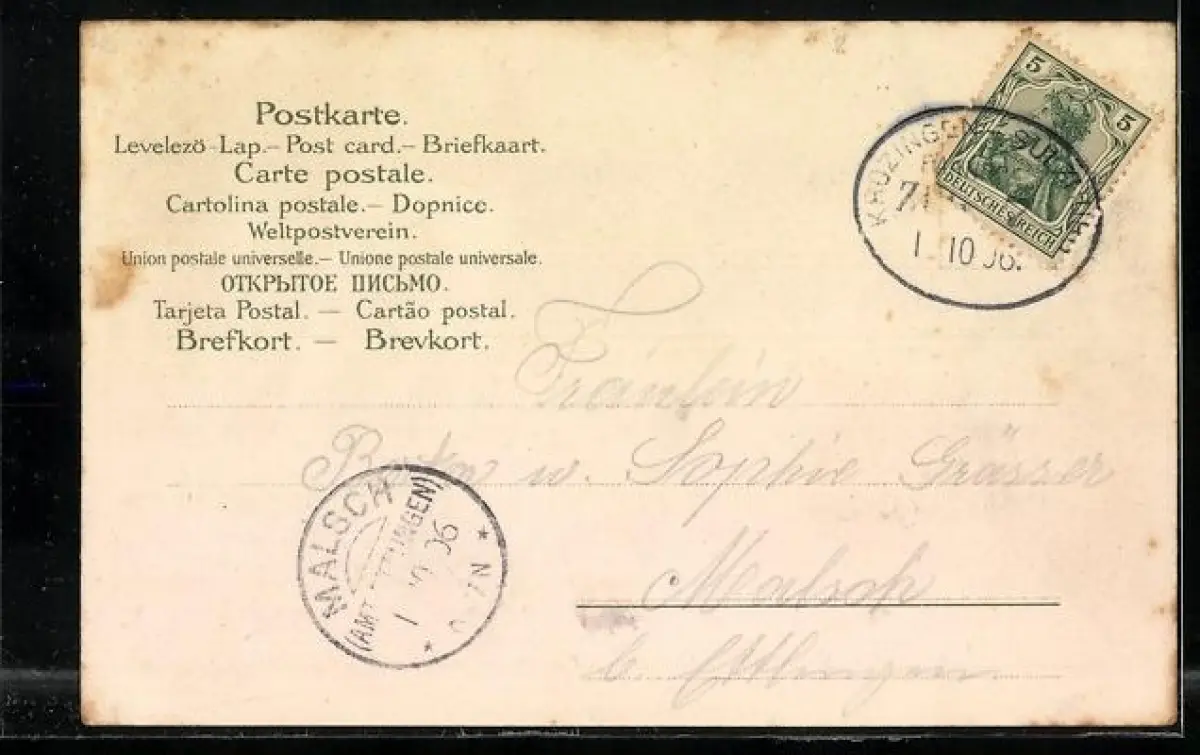 Postkarte.
Levelező-Lap.– Post card.– Briefkaart.
Carte postale.
Cartolina postale.– Dopnice.
Weltpostverein.
Union postale universelle.– Unione postale universale.
ОТКРЫТОЕ ПИСЬМО.
Tarjeta Postal. — Cartão postal.
Brefkort. — Brevkort.
5
5
DEUTSCHES REICH
KROZINGEN
1 10 06.
Fräulein
u. Sophie Grässer
Malsch
b. Ettlingen
MALSCH
(AMT ETTLINGEN)
1 10 06
N